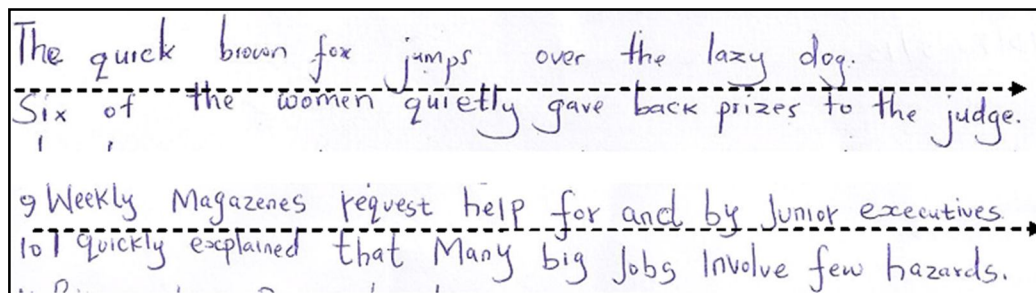 The quick brown fox jumps over the lazy dog.
Six of the women quietly gave back prizes to the judge.
9 Weekly Magazenes request help for and by Junior executives.
10 I quickly explained that Many big Jobs Involve few hazards.